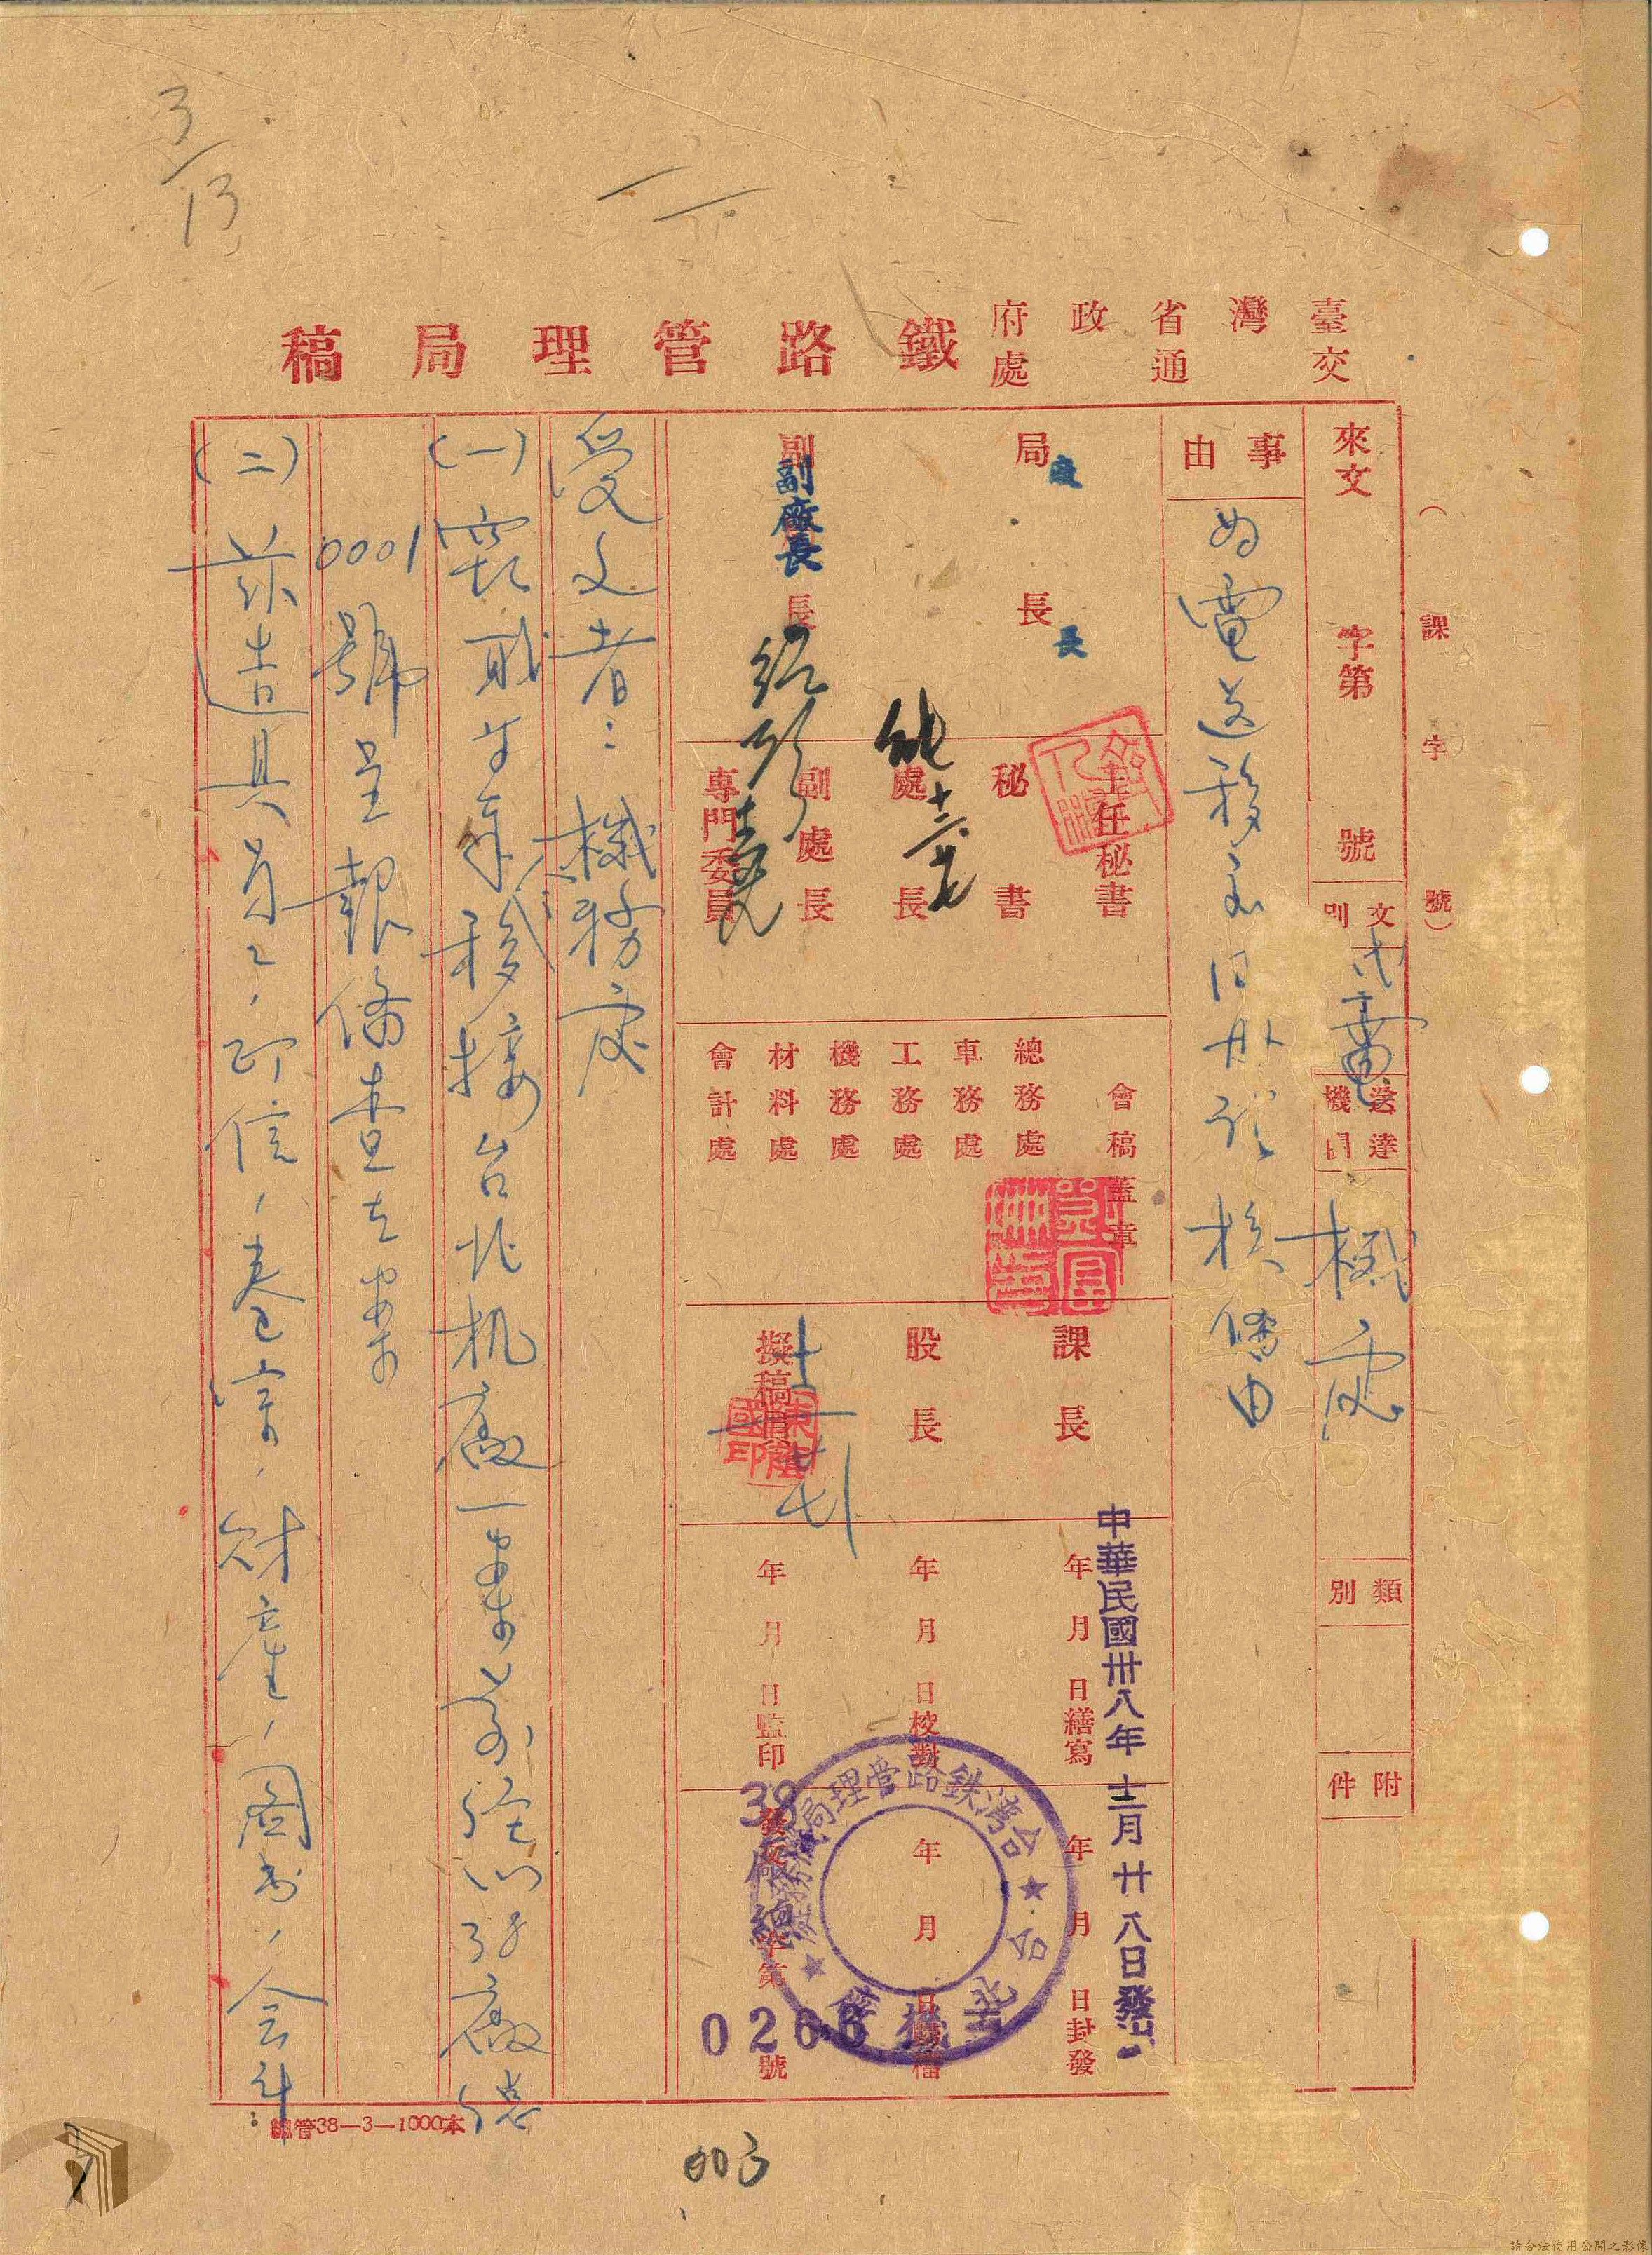 3/13
臺灣省政府
交通處
鐵路管理局稿
（課字號）
來文 字第 號
文別 代電
送達機關 機處
類別
附件
事由
為電送移交日册請核備由
局長
廠長
副長
副廠長
主任秘書
秘書
處長
副處長
專門委員
會稿蓋章
總務處
車務處
工務處
機務處
材料處
會計處
課長
股長
擬稿員
年月日繕寫
年月日校對
年月日監印
年月日封發
年月日歸檔
發文 字第 號
38 廠總 0266
中華民國卅八年十二月廿八日發出
台灣鉄路管理局機務處
台北機廠
受文者：機務處
（一）竊職等奉移接台北机廠一案前經以38廠總
0001號呈報備查在案
（二）茲造具員工，印信，卷宗，財產，圖書，会計
總管38—3—1000本
003
請合法使用公開之影像